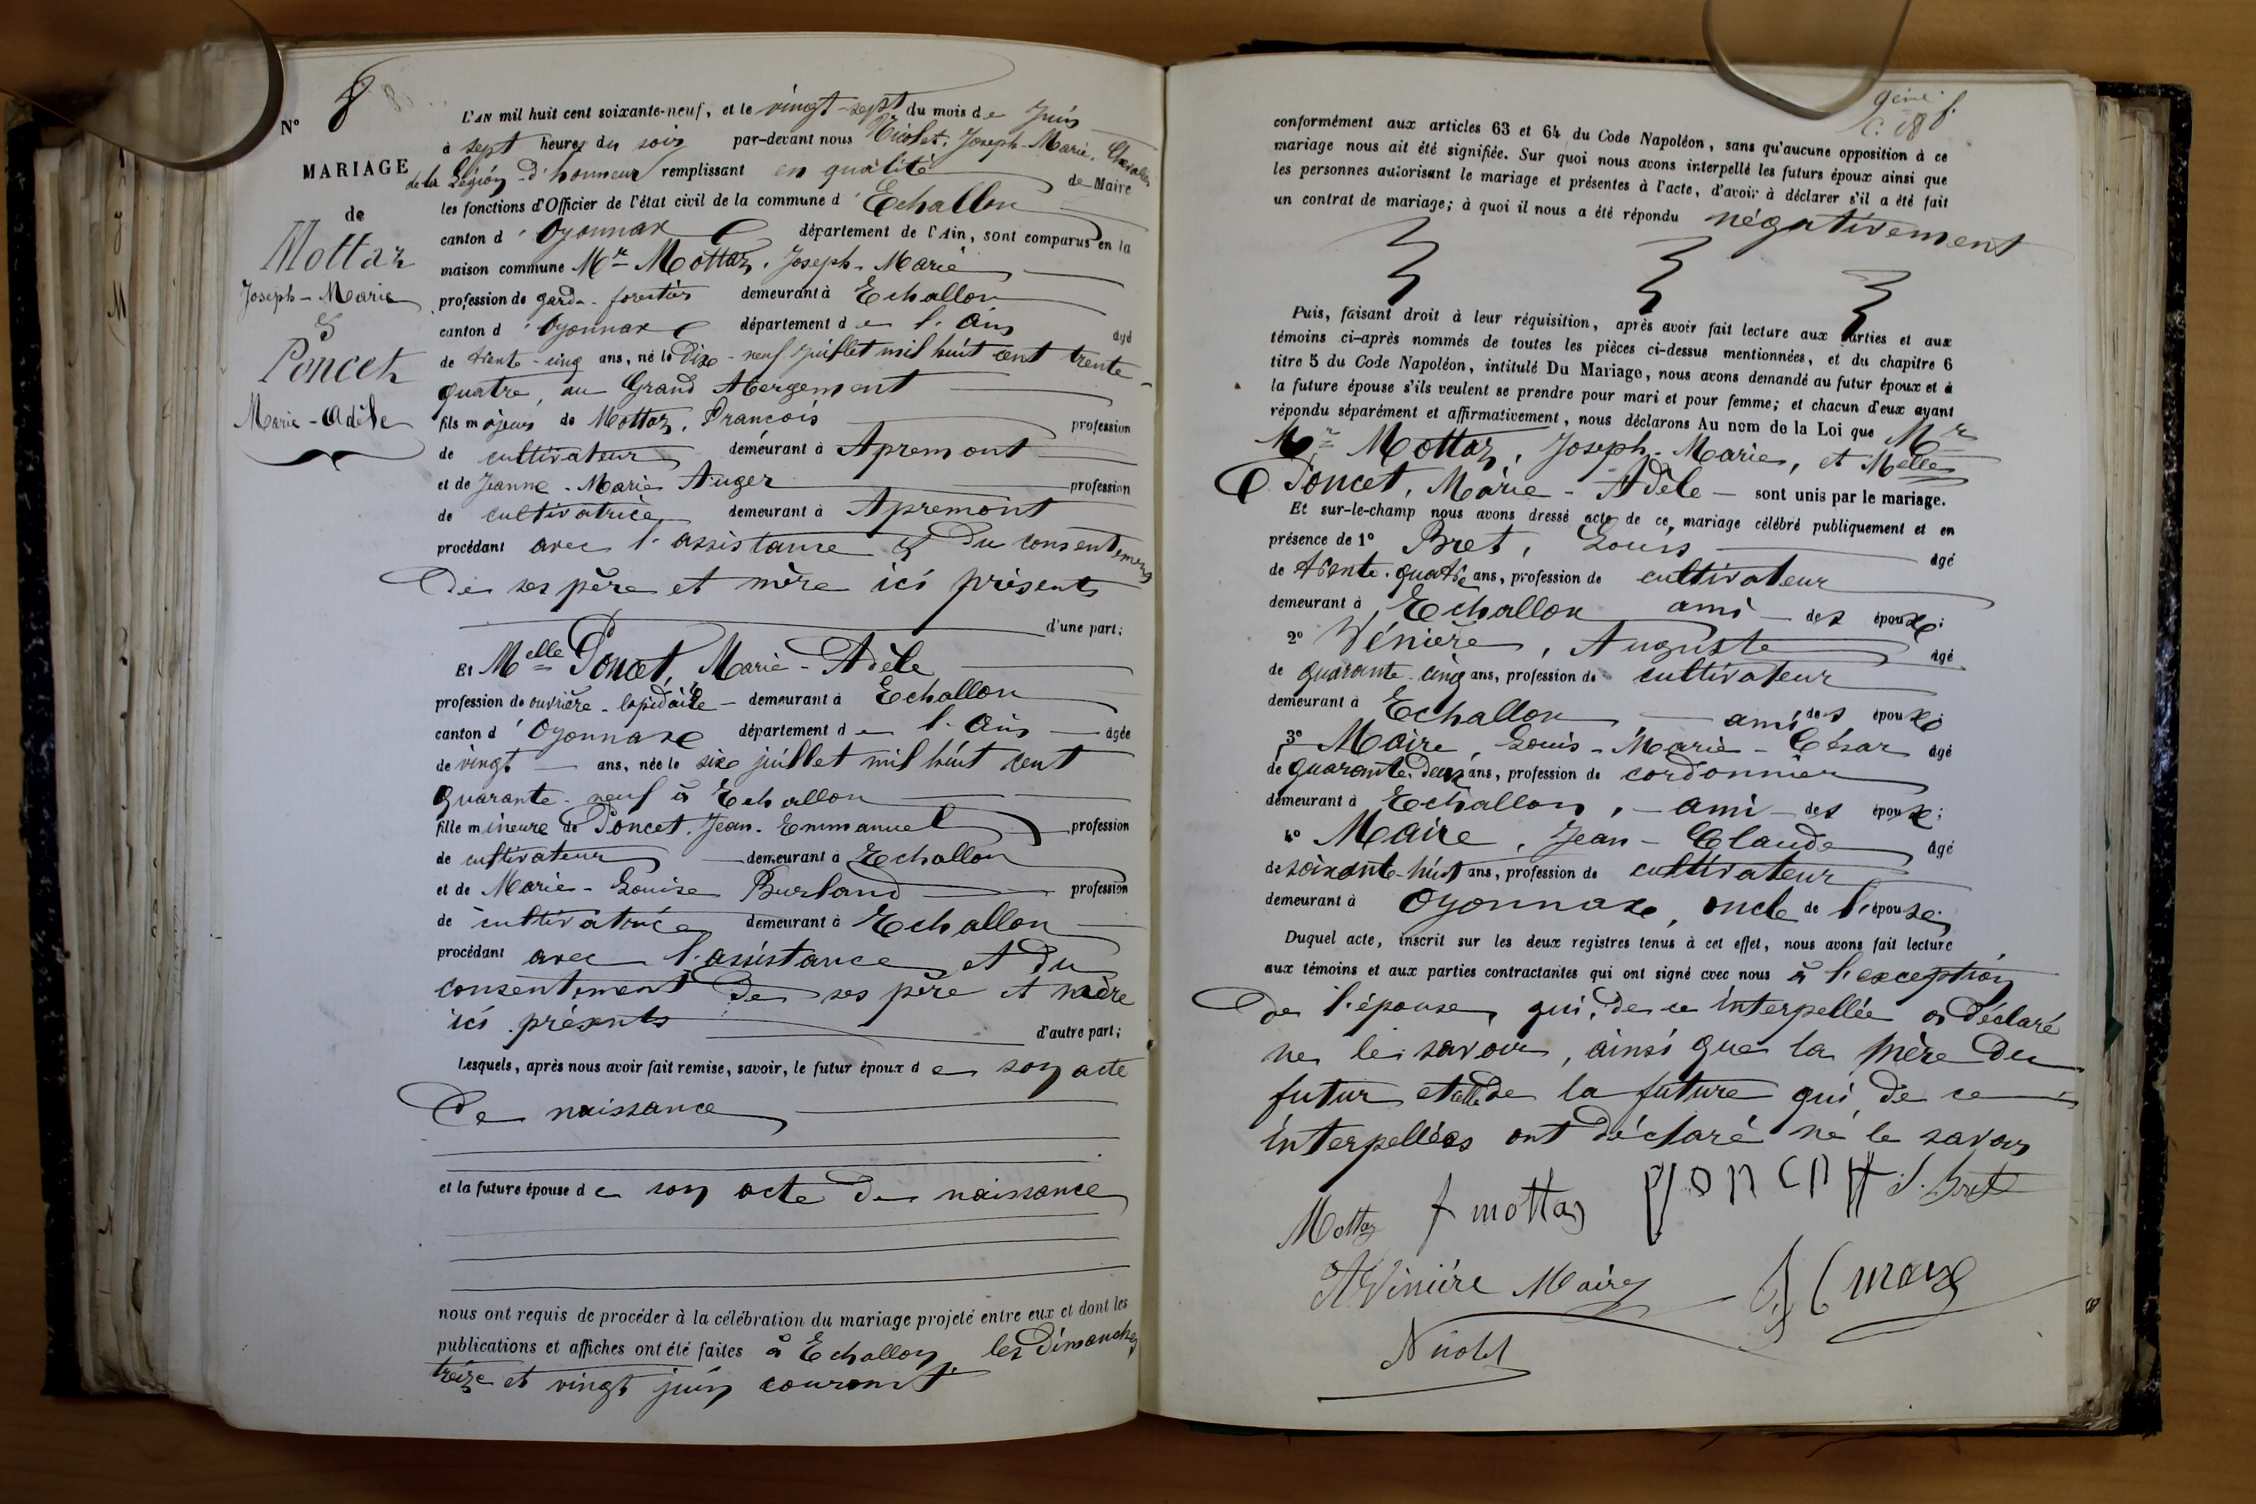 N° 8
MARIAGE
de
Mottaz
Joseph-Marie
&
Poncet
Marie-Adèle
L'AN mil huit cent soixante-neuf, et le vingt-sept du mois de Juin
à sept heures du soir par-devant nous Nicolet, Joseph-Marie, Chevalier
de la Légion-d'honneur remplissant en qualité de Maire
les fonctions d'Officier de l'état civil de la commune d'Echallon
canton d'Oyonnax département de l'Ain, sont comparus en la
maison commune Mr Mottaz, Joseph-Marie
profession de garde-forestier demeurant à Echallon
canton d'Oyonnax département de l'Ain âgé
de trente-cinq ans, né le dix-neuf juillet mil huit cent trente-
quatre, au Grand Abergement
fils majeur de Mottaz, François profession
de cultivateur demeurant à Apremont
et de Jeanne-Marie Auger profession
de cultivatrice demeurant à Apremont
procédant avec l'assistance & du consentement
de ses père et mère ici présents
d'une part;
Et Melle Poncet, Marie-Adèle
profession de ouvrière-lapidaire demeurant à Echallon
canton d'Oyonnax département de l'Ain âgée
de vingt ans, née le six juillet mil huit cent
quarante-neuf à Echallon
fille mineure de Poncet, Jean-Emmanuel profession
de cultivateur demeurant à Echallon
et de Marie-Louise Burland profession
de cultivatrice demeurant à Echallon
procédant avec l'assistance et du
consentement de ses père et mère
ici présents d'autre part;
Lesquels, après nous avoir fait remise, savoir, le futur époux de son acte
de naissance
et la future épouse de son acte de naissance
nous ont requis de procéder à la célébration du mariage projeté entre eux et dont les
publications et affiches ont été faites à Echallon, les dimanches
treize et vingt juin courant
conformément aux articles 63 et 64 du Code Napoléon, sans qu'aucune opposition à ce
mariage nous ait été signifiée. Sur quoi nous avons interpellé les futurs époux ainsi que
les personnes autorisant le mariage et présentes à l'acte, d'avoir à déclarer s'il a été fait
un contrat de mariage; à quoi il nous a été répondu négativement
Puis, faisant droit à leur réquisition, après avoir fait lecture aux parties et aux
témoins ci-après nommés de toutes les pièces ci-dessus mentionnées, et du chapitre 6
titre 5 du Code Napoléon, intitulé Du Mariage, nous avons demandé au futur époux et à
la future épouse s'ils veulent se prendre pour mari et pour femme; et chacun d'eux ayant
répondu séparément et affirmativement, nous déclarons Au nom de la Loi que Mr
Mr Mottaz, Joseph-Marie, et Melle
Poncet, Marie-Adèle sont unis par le mariage.
Et sur-le-champ nous avons dressé acte de ce mariage célébré publiquement et en
présence de 1° Bret, Louis âgé
de trente-quatre ans, profession de cultivateur
demeurant à Echallon ami des époux;
2° Vénière, Auguste âgé
de quarante-cinq ans, profession de cultivateur
demeurant à Echallon, ami des époux;
3° Maire, Louis-Marie-César âgé
de quarante-deux ans, profession de cordonnier
demeurant à Echallon, ami des époux;
4° Maire, Jean-Claude âgé
de soixante-huit ans, profession de cultivateur
demeurant à Oyonnax, oncle de l'épouse;
Duquel acte, inscrit sur les deux registres tenus à cet effet, nous avons fait lecture
aux témoins et aux parties contractantes qui ont signé avec nous à l'exception
de l'épouse, qui, de ce interpellée a déclaré
ne le savoir, ainsi que la mère du
futur et celle de la future qui, de ce
interpellées ont déclaré ne le savoir
Mottaz f mottaz poncet L. Bret
A Vinière Maire
Nicolet